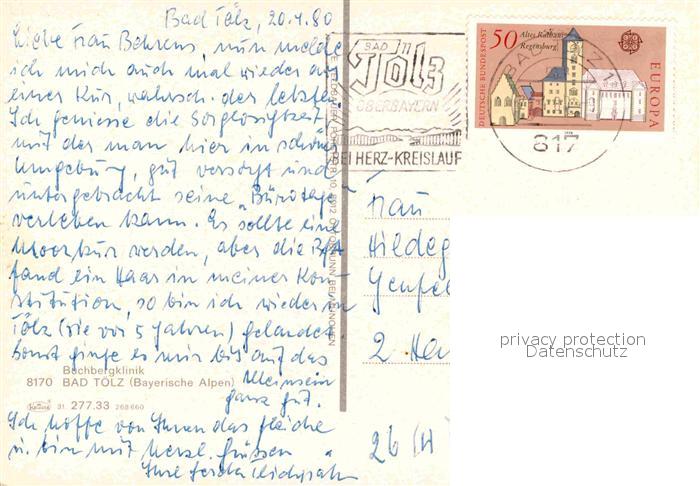 Bad Tölz, 20.4.80
Liebe Frau Behrens, nun melde
ich mich auch mal wieder aus
einer Kur, wahrsch. der letzten.
Ich geniesse die Sorglosigkeit,
mit der man hier in schöner
Umgebung, gut versorgt und
untergebracht seine "Bürotage"
verleben kann. Es sollte eine
Moorkur werden, aber die BfA
fand ein Haar in meiner Kon-
stitution, so bin ich wieder in
Tölz (wie vor 5 Jahren) gelandet.
Sonst ginge es mir bis auf das
Alleinsein
ganz gut.
Ich hoffe von Ihnen das gleiche
u. bin mit herzl. Grüssen
Ihre Gerda
Buchbergklinik
8170 BAD TÖLZ (Bayerische Alpen)
31. 277.33 268 660
BAD
Tölz
OBERBAYERN
BEI HERZ-KREISLAUF
50 Altes Rathaus
Regensburg
DEUTSCHE BUNDESPOST
EUROPA
BAD TÖLZ 1
817
Frau
Hildeg
2 Ham
26 (H
privacy protection
Datenschutz